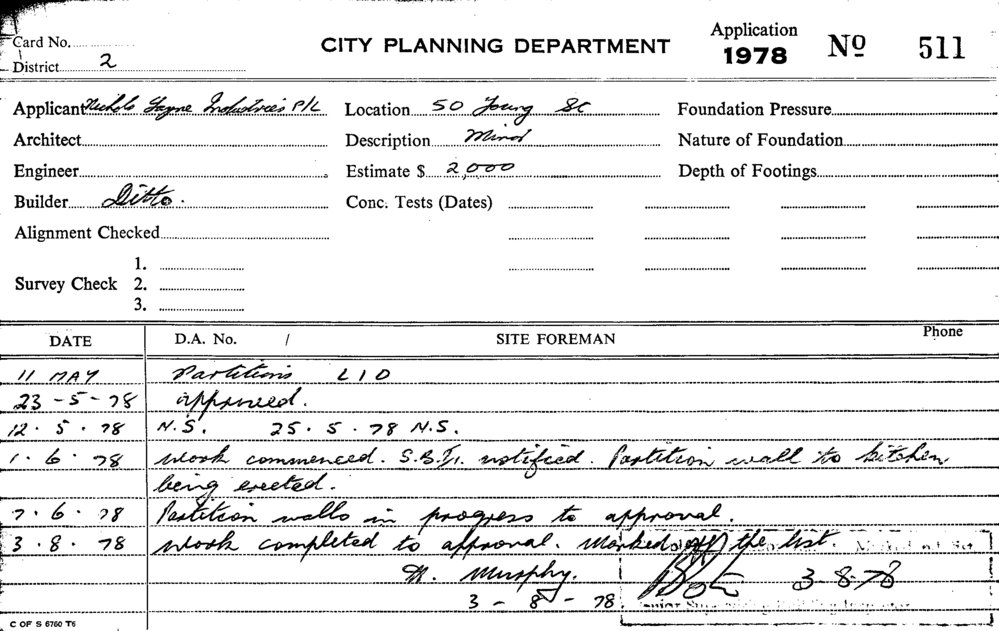 Card No.
District 2
CITY PLANNING DEPARTMENT
Application
1978 No 511
Applicant Nichols Industries P/L
Location 50 Young St
Foundation Pressure
Architect
Description Minor
Nature of Foundation
Engineer
Estimate $ 2,000
Depth of Footings
Builder Ditto.
Conc. Tests (Dates)
Alignment Checked
Survey Check 1.
2.
3.
DATE D.A. No. / SITE FOREMAN Phone
11 MAY Partitions L10
23-5-78 approved.
12.5.78 N.S. 25.5.78 N.S.
1.6.78 Work commenced. S.B.I. notified. Partition wall to kitchen
being erected.
7.6.78 Partition walls in progress to approval.
3.8.78 Work completed to approval. Marked off the list.
M. Murphy.
3-8-78.
3.8.78
C OF S 6760 T6